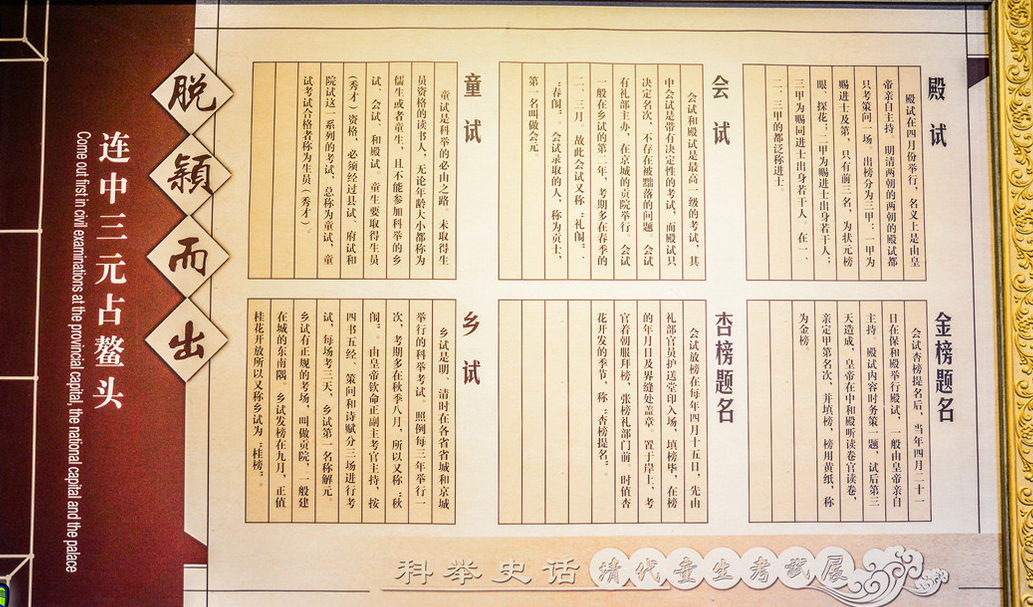 脱颖而出
连中三元占鳌头
Come out first in civil examinations at the provincial capital, the national capital and the palace
殿试
殿试在四月份举行，名义上是由皇
帝亲自主持，明清两朝的两朝的殿试都
只考策问一场。出榜分为三甲：一甲为
赐进士及第，只有前三名，为状元榜
眼、探花，二甲为赐进士出身若干人；
三甲为赐同进士出身若干人。在一、
二、三甲的都泛称进士。
会试
会试和殿试是最高一级的考试，其
中会试是带有决定性的考试，而殿试只
决定名次，不存在被黜落的问题。会试
有礼部主办，在京城的贡院举行。会试
一般在乡试的第二年，考期多在春季的
二、三月，故此会试又称“礼闱”、
“春闱”。会试录取的人，称为贡士，
第一名叫做会元。
童试
童试是科举的必由之路，未取得生
员资格的读书人，无论年龄大小都称为
儒生或者童生，且不能参加科举的乡
试、会试、和殿试。童生要取得生员
(秀才)资格，必须经过县试、府试和
院试这一系列的考试，总称为童试，童
试考试合格者称为生员（秀才）。
金榜题名
会试杏榜提名后，当年四月二十一
日在保和殿举行殿试，一般由皇帝亲自
主持，殿试内容时务策一题，试后第三
天造成，皇帝在中和殿听读卷官读卷，
亲定甲第名次，并填榜，榜用黄纸，称
为金榜。
杏榜题名
会试放榜在每年四月十五日，先由
礼部官员护送堂印入场，填榜毕，在榜
的年月日及界缝处盖章。置于岸上，考
官着朝服拜榜，张榜礼部门前。时值杏
花开发的季节，称“杏榜提名”。
乡试
乡试是明、清时在各省省城和京城
举行的科举考试。照例每三年举行一
次，考期多在秋季八月，所以又称“秋
闱”。由皇帝钦命正副主考官主持，按
四书五经、策问和诗赋分三场进行考
试，每场考三天，乡试第一名称解元。
乡试有正规的考场，叫做贡院，一般建
在城的东南隅。乡试发榜在九月，正值
桂花开放所以又称乡试为“桂榜”。
科举史话
清代童生考试展